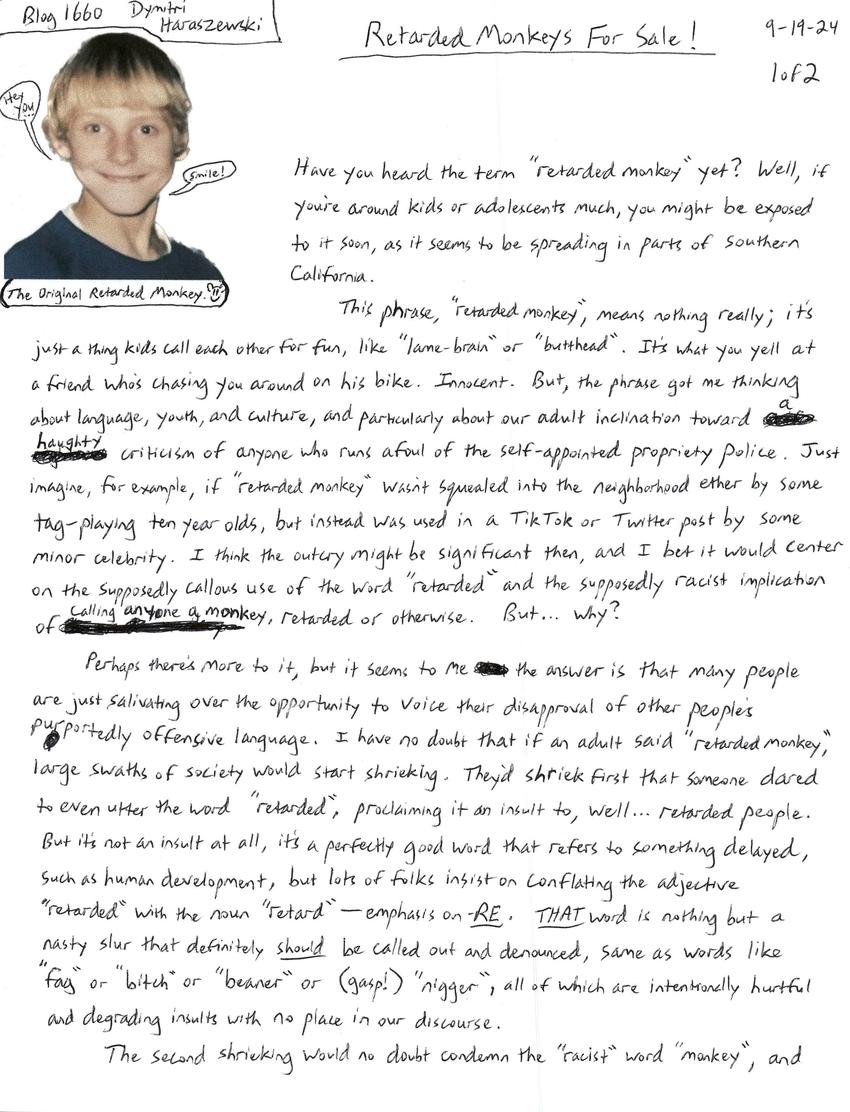 Blog 1660 Dymitri
Haraszewski
Retarded Monkeys For Sale!
9-19-24
1 of 2
Hey
you...
Smile!
The Original Retarded Monkey.
Have you heard the term "retarded monkey" yet? Well, if
you're around kids or adolescents much, you might be exposed
to it soon, as it seems to be spreading in parts of Southern
California.
This phrase, "retarded monkey", means nothing really; it's
just a thing kids call each other for fun, like "lame-brain" or "butthead". It's what you yell at
a friend who's chasing you around on his bike. Innocent. But, the phrase got me thinking
about language, youth, and culture, and particularly about our adult inclination toward a
haughty criticism of anyone who runs afoul of the self-appointed propriety police. Just
imagine, for example, if "retarded monkey" wasn't squealed into the neighborhood ether by some
tag-playing ten year olds, but instead was used in a TikTok or Twitter post by some
minor celebrity. I think the outcry might be significant then, and I bet it would center
on the supposedly callous use of the word "retarded" and the supposedly racist implication
of calling anyone a monkey, retarded or otherwise. But... why?
Perhaps there's more to it, but it seems to me the answer is that many people
are just salivating over the opportunity to voice their disapproval of other people's
purportedly offensive language. I have no doubt that if an adult said "retarded monkey",
large swaths of society would start shrieking. They'd shriek first that someone dared
to even utter the word "retarded", proclaiming it an insult to, well... retarded people.
But it's not an insult at all, it's a perfectly good word that refers to something delayed,
such as human development, but lots of folks insist on conflating the adjective
"retarded" with the noun "retard" — emphasis on -RE. THAT word is nothing but a
nasty slur that definitely should be called out and denounced, same as words like
"fag" or "bitch" or "beaner" or (gasp!) "nigger", all of which are intentionally hurtful
and degrading insults with no place in our discourse.
The second shrieking would no doubt condemn the "racist" word "monkey", and